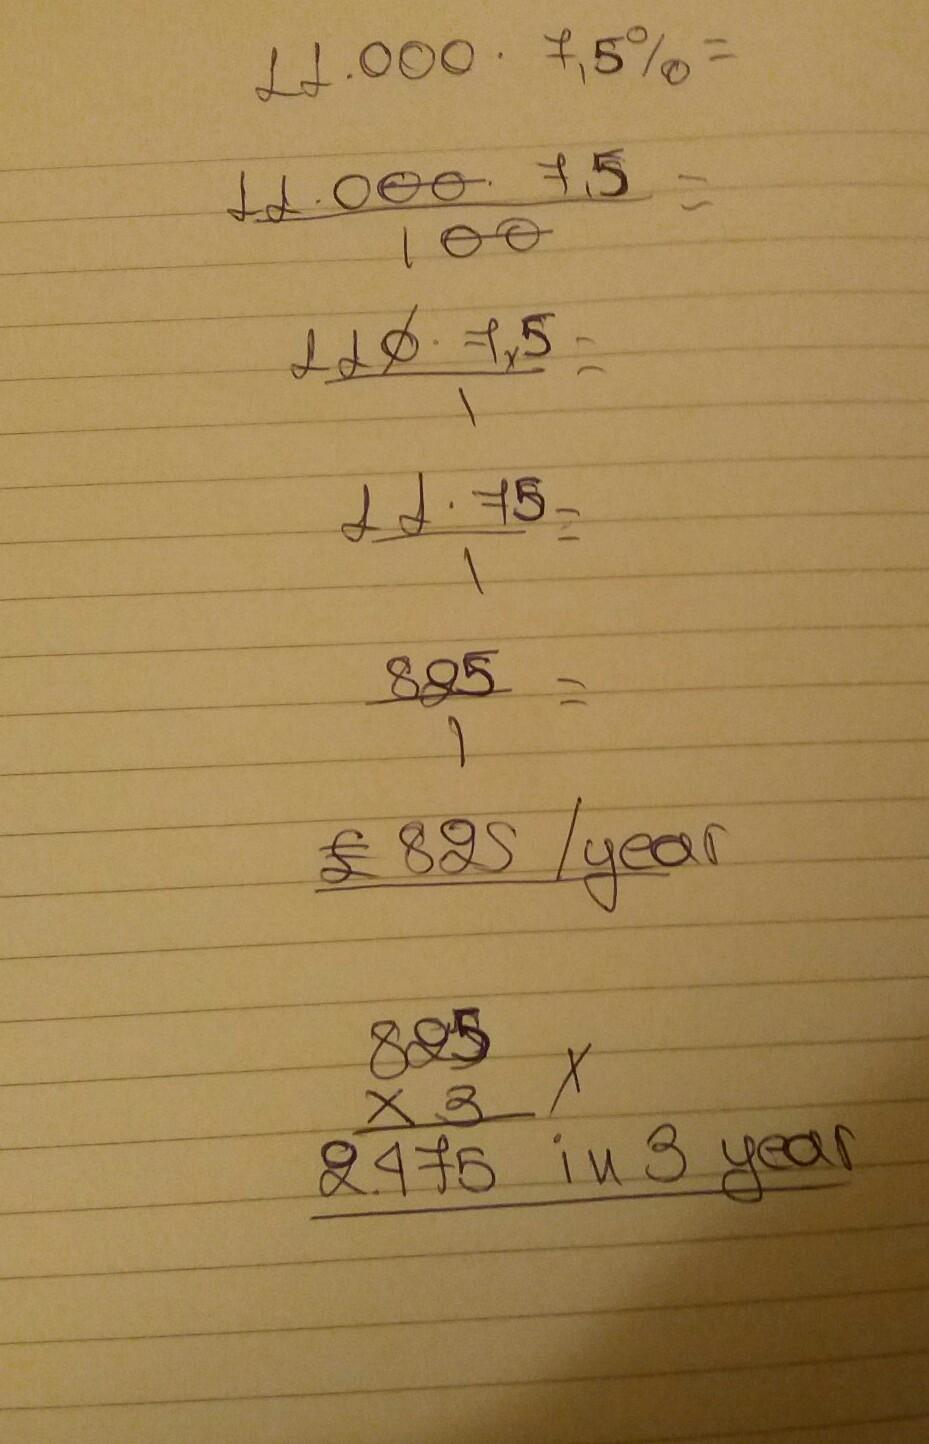 11.000 · 7,5% =
11.000 · 7,5 =
100
110 · 7,5 =
1
11 · 75 =
1
825 =
1
£ 825 / year
825
x 3 x
2.475 in 3 year